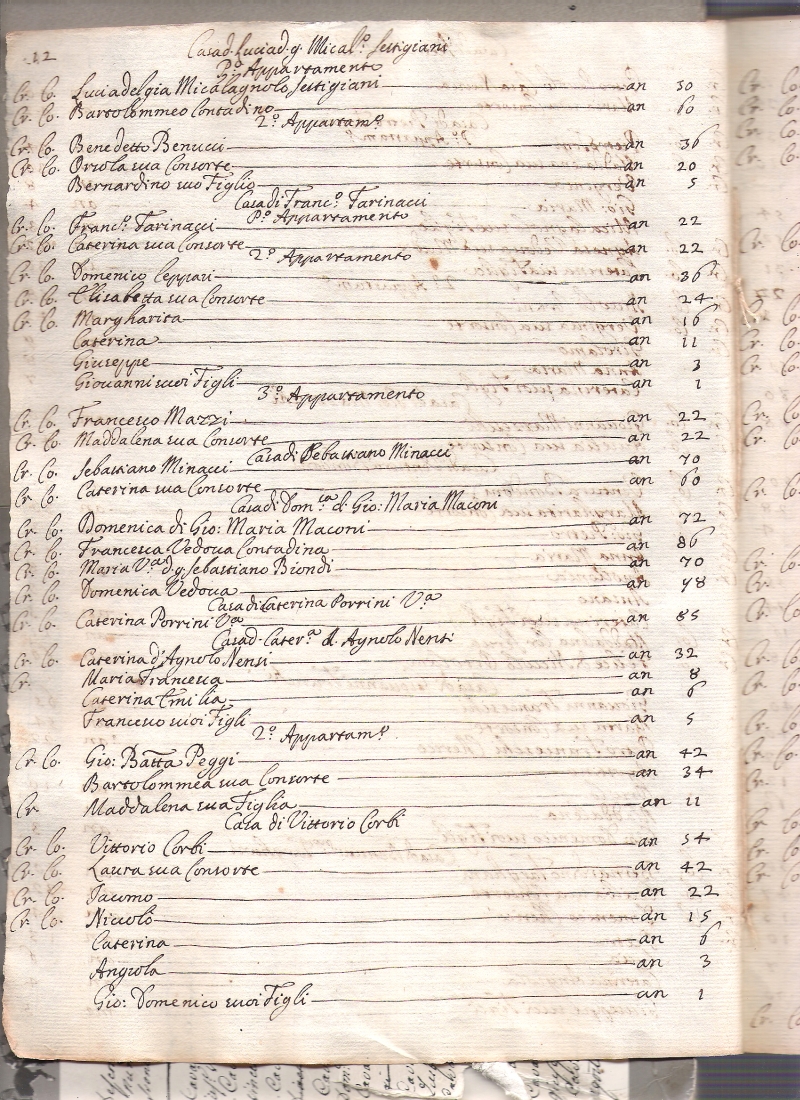 12
Casa d. Lucia d. g. Mical.o Sestigiani
P.o Appartamento
Cr. Co. Lucia del gia Micalagnolo Sestigiani an 50
Cr. Co. Bartolommeo Contadino an 60
2.o Appartam.o
Cr. Co. Benedetto Benucci an 36
Cr. Co. Orsola sua Consorte an 20
Bernardino suo Figlio an 5
Casa di Franc.o Farinacci
P.o Appartamento
Cr. Co. Franc.o Farinacci an 22
Cr. Co. Caterina sua Consorte an 22
2.o Appartamento
Cr. Co. Domenico Ceppari an 36
Cr. Co. Elisabetta sua Consorte an 24
Cr. Co. Margharita an 16
Caterina an 11
Giuseppe an 3
Giovanni suoi Figli an 1
3.o Appartamento
Cr. Co. Francesco Mazzi an 22
Cr. Co. Maddalena sua Consorte an 22
Casa di Sebastiano Minacci
Cr. Co. Sebastiano Minacci an 70
Cr. Co. Caterina sua Consorte an 60
Casa di Dom.ca d. Gio: Maria Maconi
Cr. Co. Domenica di Gio: Maria Maconi an 72
Cr. Co. Francesca Vedova Contadina an 86
Cr. Co. Maria V.a d. g. Sebastiano Biondi an 70
Cr. Co. Domenica Vedova an 48
Casa di Caterina Porrini V.a
Cr. Co. Caterina Porrini V.a an 85
Casa d. Cater.a d. Agnolo Nensi
Cr. Co. Caterina d'Agnolo Nensi an 32
Cr. Maria Francesca an 8
Caterina Emilia an 6
Francesco suoi Figli an 5
2.o Appartam.o
Cr. Co. Gio: Batta Peggi an 42
Bartolommea sua Consorte an 34
Cr. Maddalena sua Figlia an 11
Casa di Vittorio Corbi
Cr. Co. Vittorio Corbi an 54
Cr. Co. Laura sua Consorte an 42
Cr. Co. Jacomo an 22
Cr. Co. Niccolò an 15
Caterina an 6
Angiola an 3
Gio: Domenico suoi Figli an 1